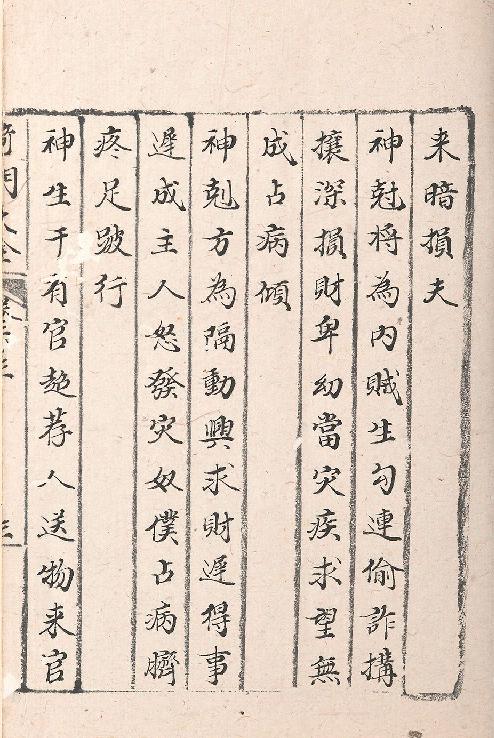 来暗損夫
神尅将為内賊生勾連偷詐搆
攘深損財卑幼當灾疾求望無
成占病傾
神剋方為隔動興求財遅得事
遅成主人怒發灾奴僕占病臍
疼足跛行
神生干有官趂荐人送物来官